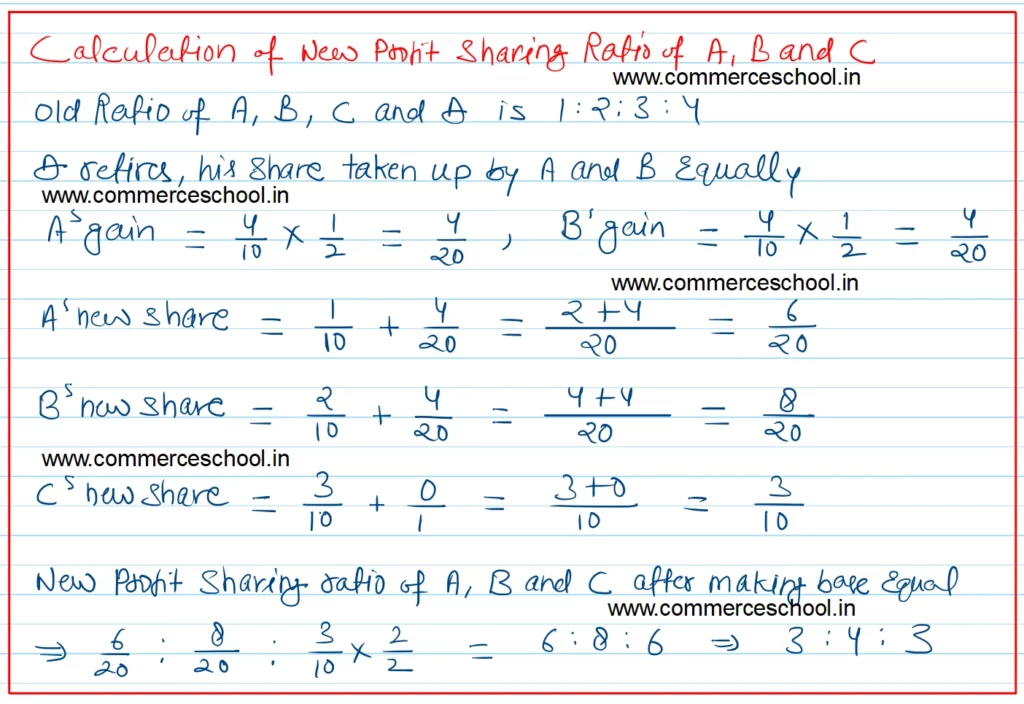 Calculation of New Profit Sharing Ratio of A, B and C
www.commerceschool.in
Old Ratio of A, B, C and D is 1 : 2 : 3 : 4
D retires, his share taken up by A and B Equally
www.commerceschool.in
A's gain = 4/10 × 1/2 = 4/20 , B' gain = 4/10 × 1/2 = 4/20
www.commerceschool.in
A's new share = 1/10 + 4/20 = 2+4/20 = 6/20
B's new share = 2/10 + 4/20 = 4+4/20 = 8/20
www.commerceschool.in
C's new share = 3/10 + 0/1 = 3+0/10 = 3/10
New Profit Sharing ratio of A, B and C after making base Equal
www.commerceschool.in
⇒ 6/20 : 8/20 : 3/10 × 2/2 = 6 : 8 : 6 ⇒ 3 : 4 : 3